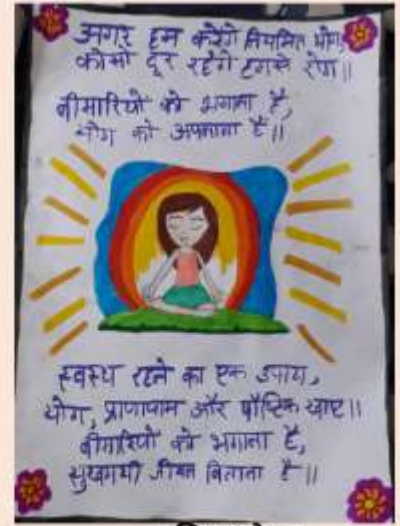 अगर हम करेंगे नियमित योग,
कोसो दूर रहेंगे हमसे रोग॥
बीमारियों को भगाना है,
योग को अपनाना है॥
स्वस्थ रहने का एक उपाय,
योग, प्राणायाम और पौष्टिक खाए॥
बीमारियों को भगाना है,
सुखमयी जीवन बिताना है॥